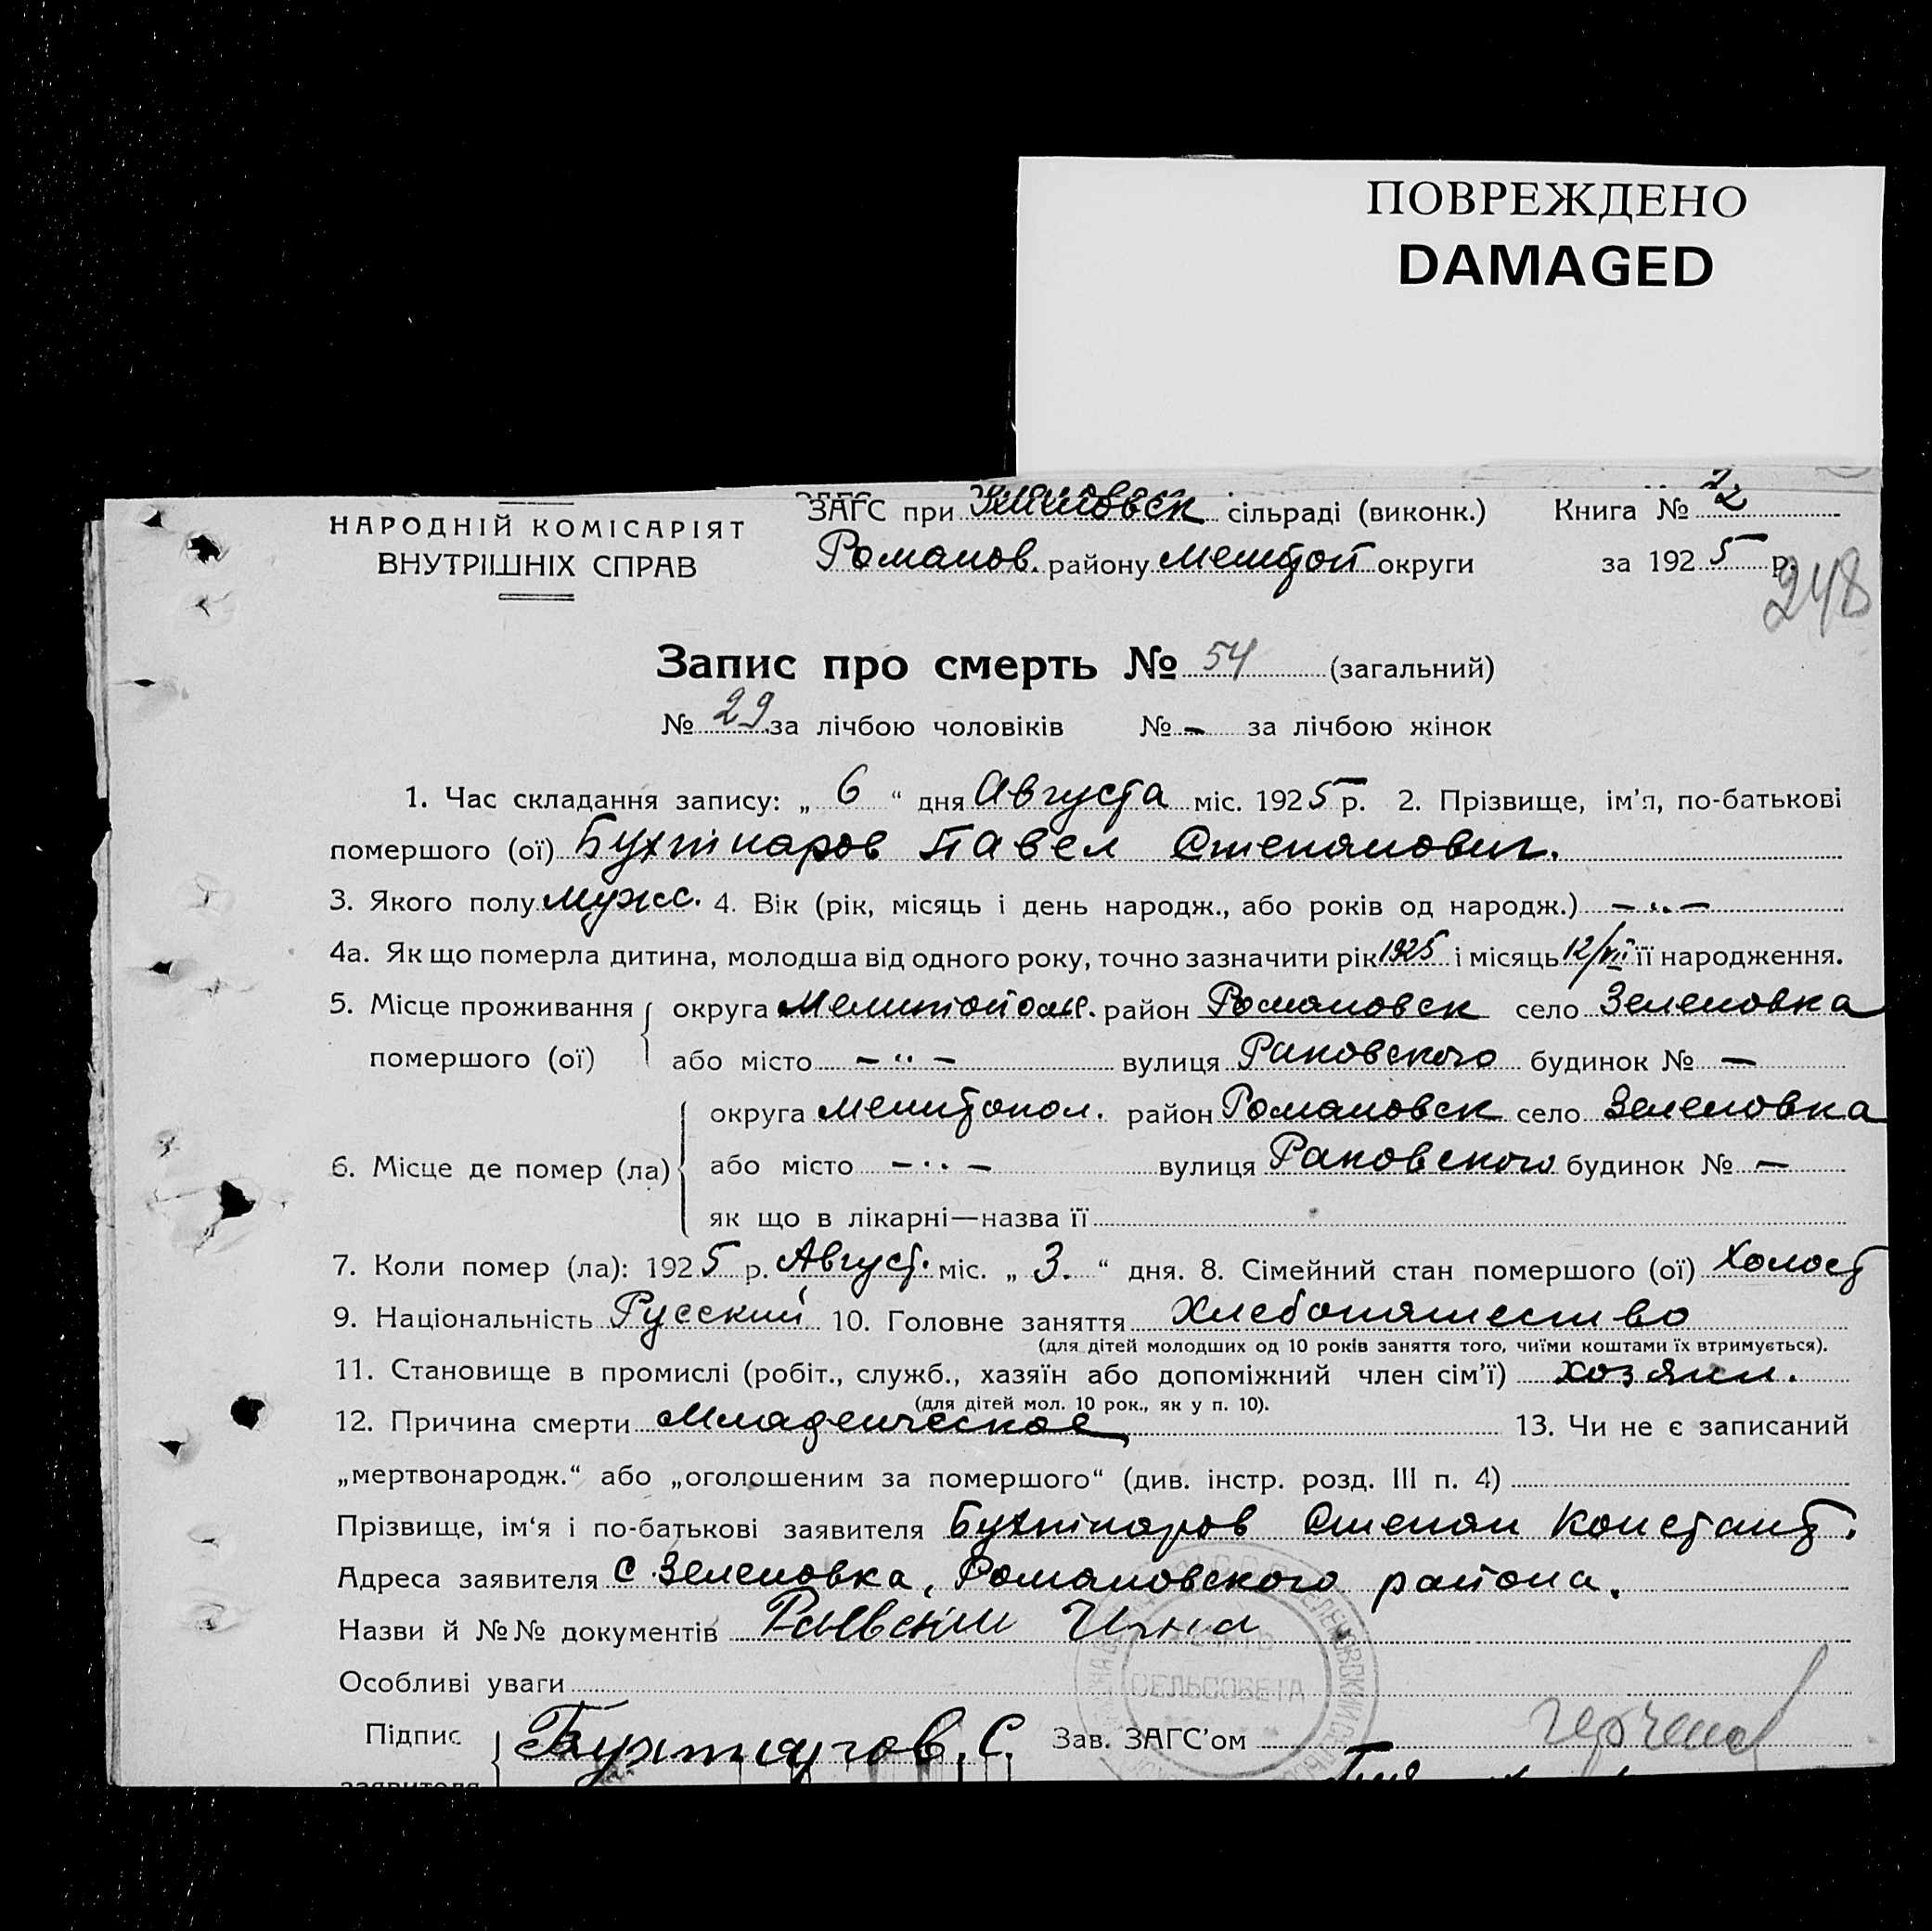 ПОВРЕЖДЕНО
DAMAGED
НАРОДНІЙ КОМІСАРІЯТ
ВНУТРІШНІХ СПРАВ
ЗАГС при сільраді (виконк.) Книга № 2
Романов. району Мелитоп округи за 1925 р.
248
Запис про смерть № 54 (загальний)
№ 29 за лічбою чоловіків № - за лічбою жінок
1. Час складання запису: „ 6 “ дня Августа міс. 1925 р. 2. Прізвище, ім'я, по-батькові
помершого (ої) Бухтіяров Павел Степанович.
3. Якого полу мужс. 4. Вік (рік, місяць і день народж., або років од народж.) — „ —
4а. Як що померла дитина, молодша від одного року, точно зазначити рік 1925 і місяць 12/VII її народження.
5. Місце проживання округа Мелитопольс. район Романовск село Зеленовка
помершого (ої) або місто — „ — вулиця Раковского будинок № —
округа Мелитопол. район Романовск село Зеленовка
6. Місце де помер (ла) або місто — „ — вулиця Раковского будинок № —
як що в лікарні—назва її
7. Коли помер (ла): 1925 р. Август. міс. „ 3. “ дня. 8. Сімейний стан помершого (ої) Холост
9. Національність Русский 10. Головне заняття Хлебопашество
(для дітей молодших од 10 років заняття того, чиїми коштами їх втримується).
11. Становище в промислі (робіт., служб., хазяїн або допоміжний член сім'ї) хозяин.
(для дітей мол. 10 рок., як у п. 10).
12. Причина смерти Младенческое 13. Чи не є записаний
„мертвонародж.“ або „оголошеним за помершого“ (див. інстр. розд. III п. 4)
Прізвище, ім'я і по-батькові заявителя Бухтіяров Степан Констант.
Адреса заявителя с. Зеленовка, Романовского района.
Назви й №№ документів
Особливі уваги
СЕЛЬСОВЕТА
Підпис Бухтияров. С. Зав. ЗАГС'ом
заявителя